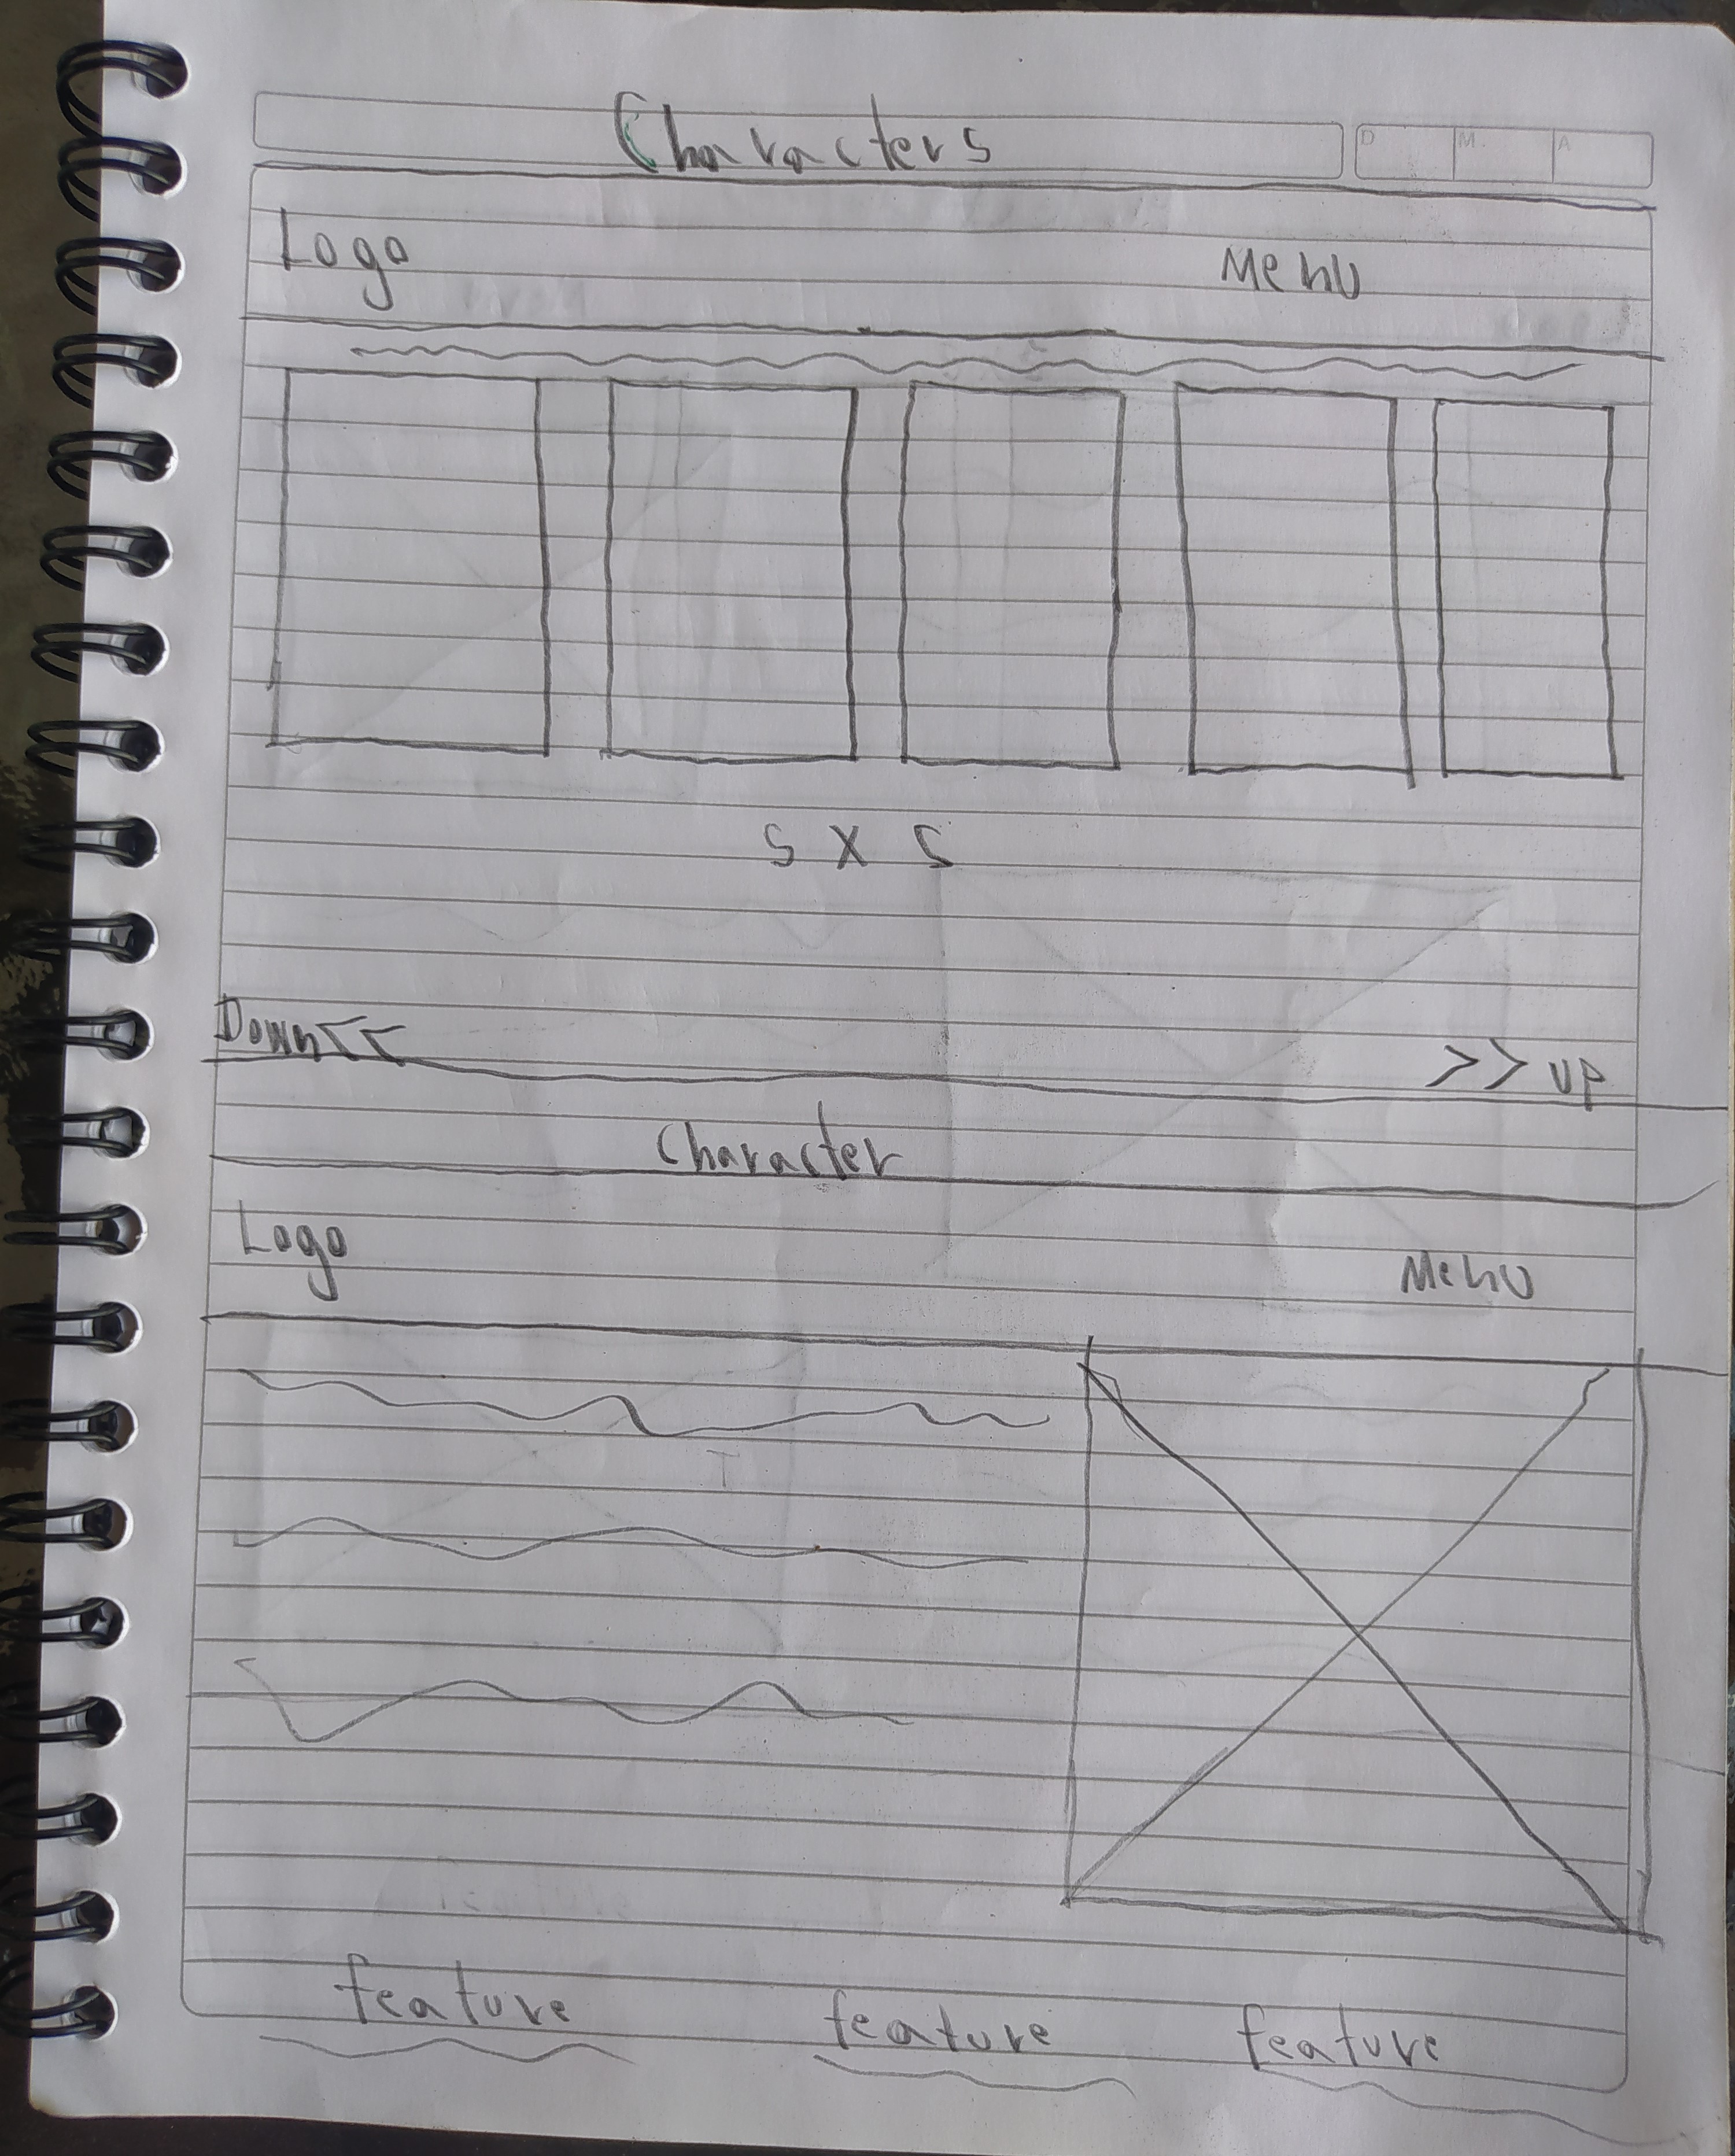 Characters
D M. A
Logo Menu
5 X 5
Down << >> UP
Character
Logo Menu
feature feature feature